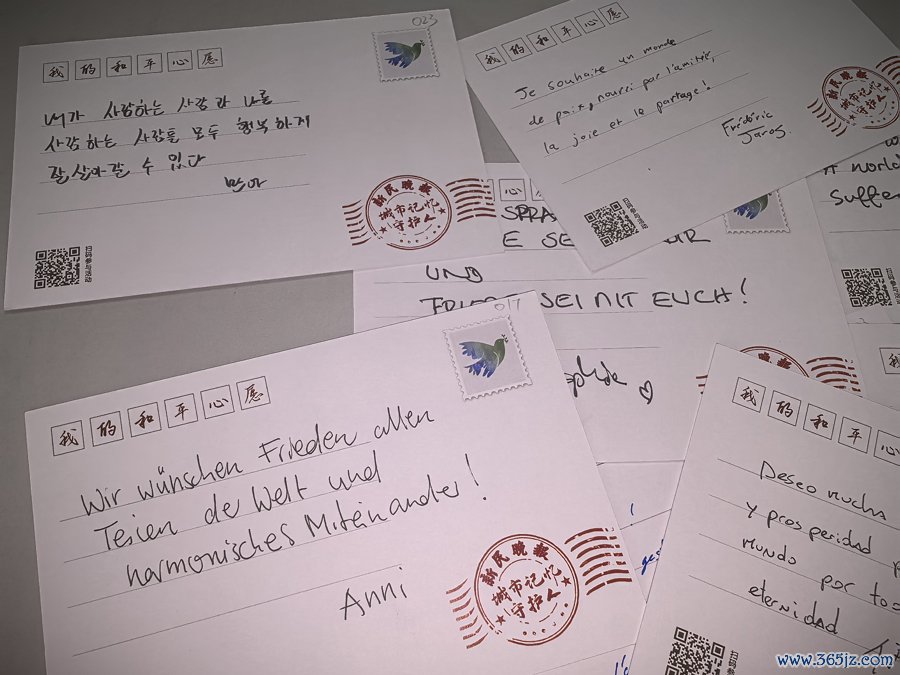 023
我的和平心愿
내가 사랑하는 사람과 나를
사랑하는 사람들 모두 행복하게
잘 살아갈 수 있다
新民晚报
城市记忆
守护人
扫码参与活动
我的和平心愿
Je souhaite un monde
de paix, nourri par l'amitié,
la joie et le partage!
Frédéric
Jaros.
新民晚报
城市记忆
守护人
扫码参与活动
心愿
SPRA
E SE
UR
UND
SEI MIT EUCH!
world
Suffer
017
我的和平心愿
Wir wünschen Frieden allen
Teilen de Welt und
harmonisches Miteinander!
Anni
新民晚报
城市记忆
守护人
我的和平心
Deseo mucha
y prosperidad
mundo por to
eternidad
www.365jz.com